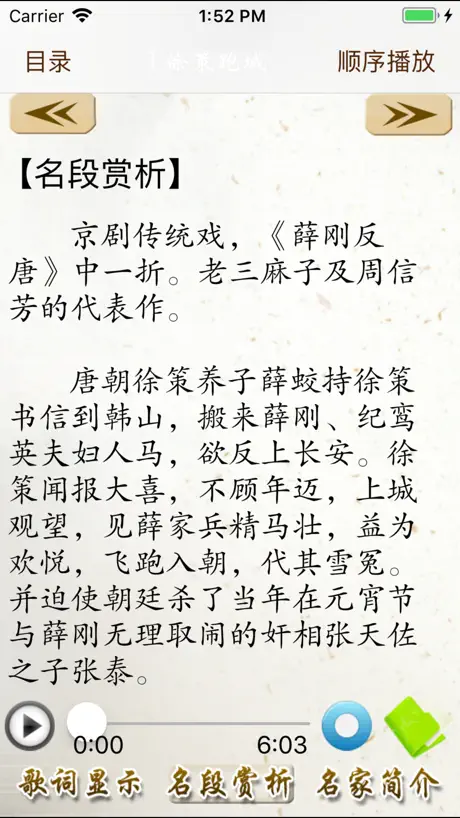 Carrier 1:52 PM
目录 徐策跑城 顺序播放
【名段赏析】
京剧传统戏，《薛刚反
唐》中一折。老三麻子及周信
芳的代表作。
唐朝徐策养子薛蛟持徐策
书信到韩山，搬来薛刚、纪鸾
英夫妇人马，欲反上长安。徐
策闻报大喜，不顾年迈，上城
观望，见薛家兵精马壮，益为
欢悦，飞跑入朝，代其雪冤。
并迫使朝廷杀了当年在元宵节
与薛刚无理取闹的奸相张天佐
之子张泰。
0:00 6:03
歌词显示 名段赏析 名家简介